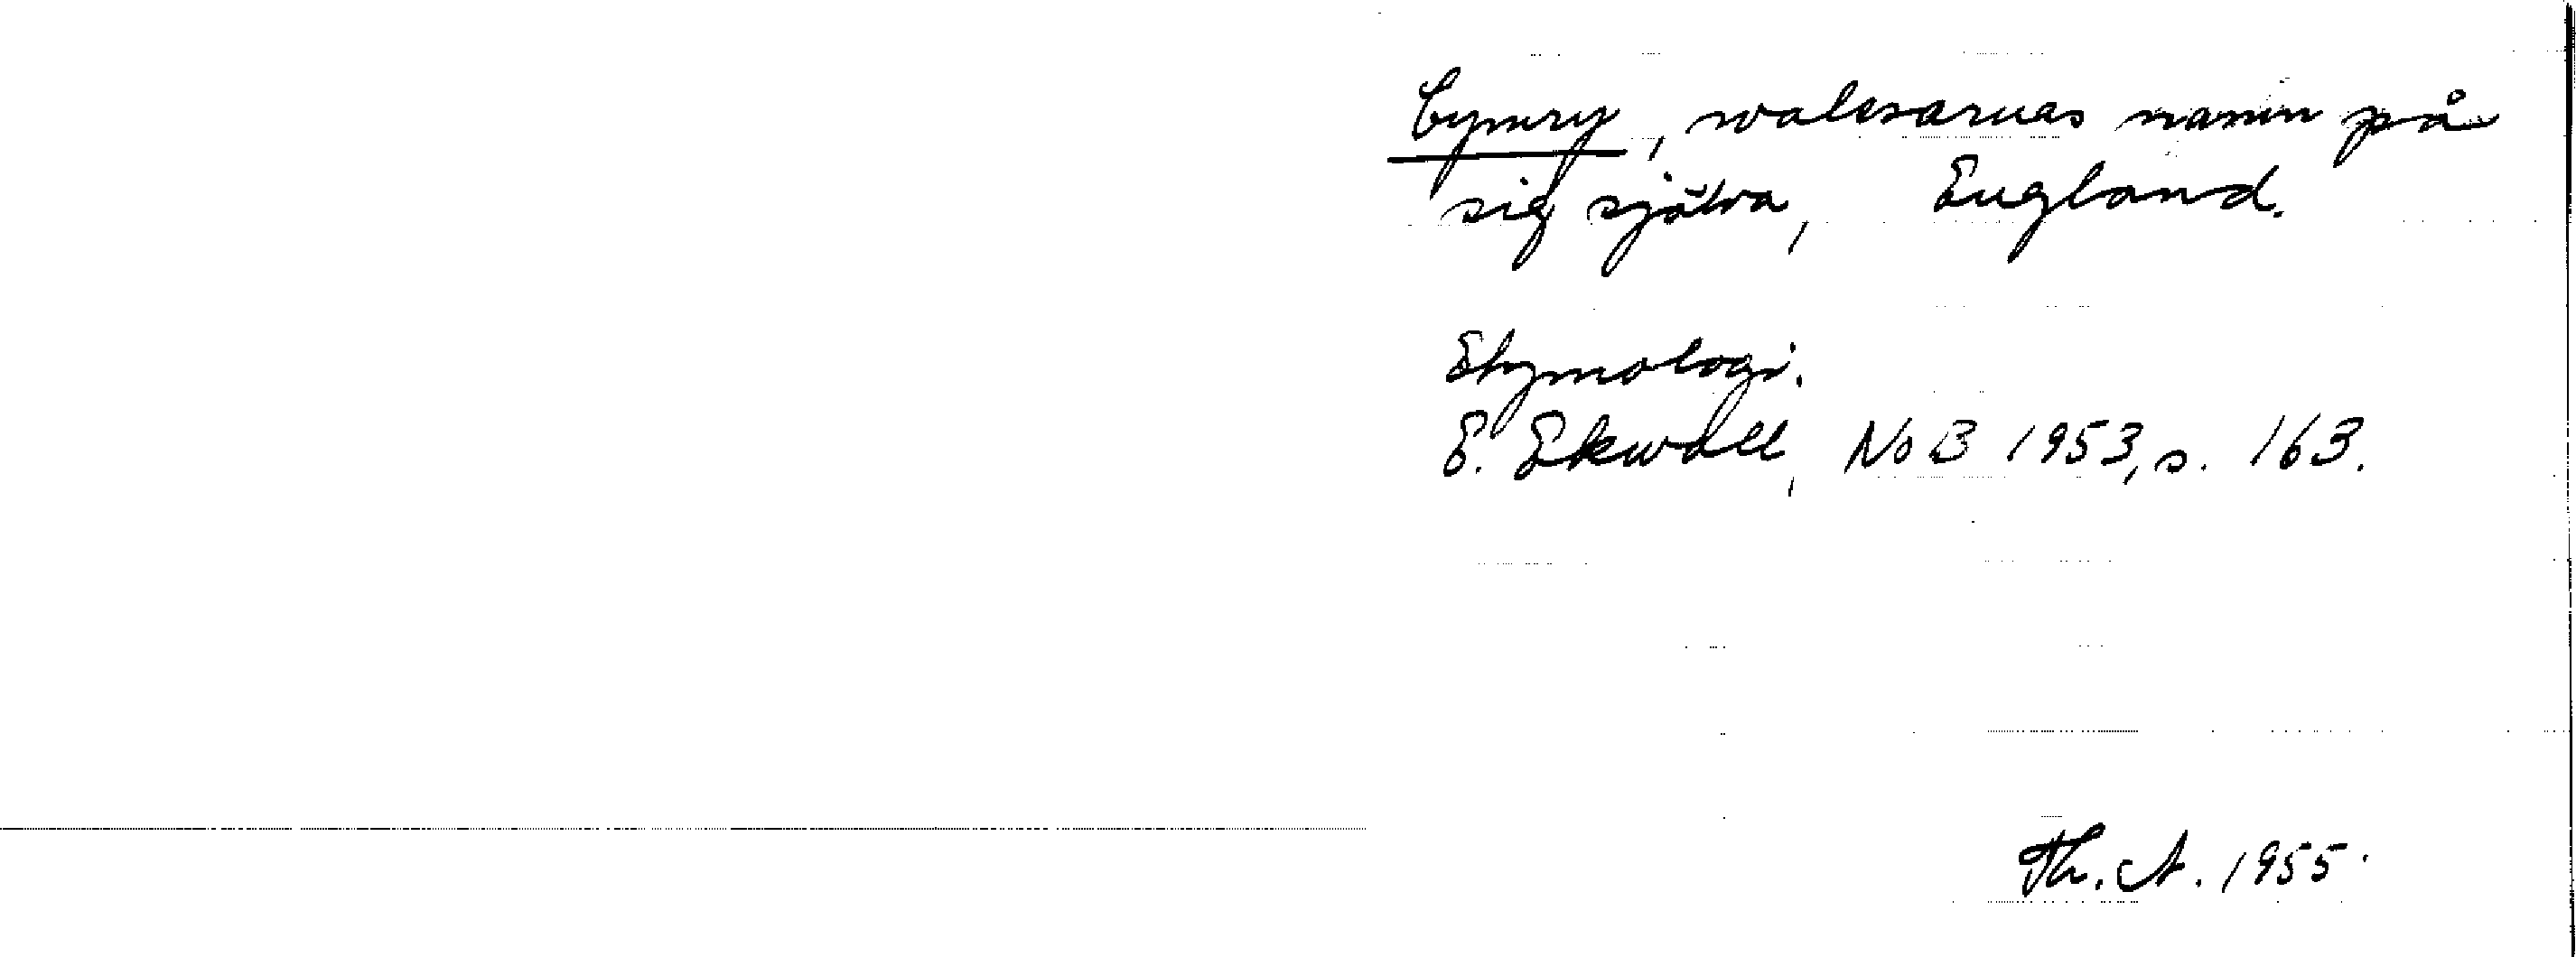 Cymry, walesarnas namn på
sig själva, England.
Etymologi.
E. Ekwall, NoB 1953, s. 163.
Th. A. 1955.